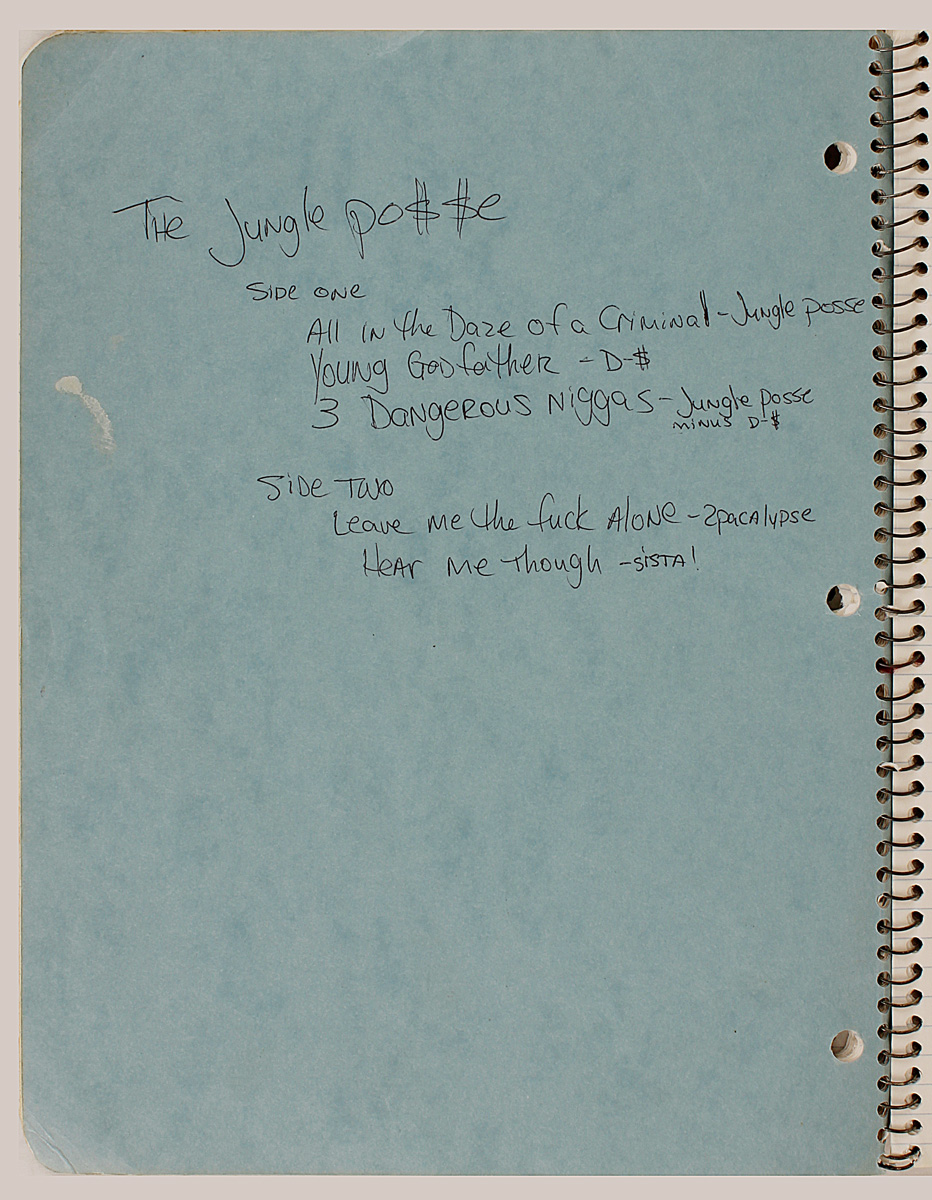 The Jungle po$$e
Side one
All in the Daze of a Criminal - Jungle posse
Young Godfather - D-$
3 Dangerous Niggas - Jungle posse
minus D-$
Side Two
Leave me the fuck Alone - 2pacalypse
Hear me though - sista!